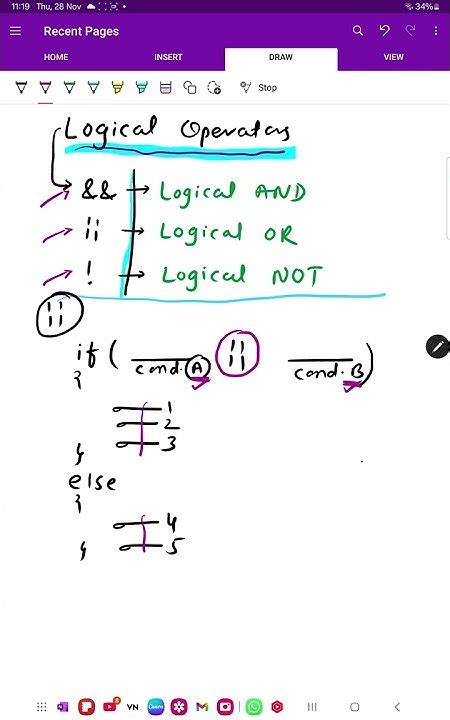 11:19 Thu, 28 Nov
34%
Recent Pages
HOME INSERT DRAW VIEW
Stop
Logical Operators
&& → Logical AND
|| → Logical OR
! → Logical NOT
||
if ( cond. A || cond. B )
{
1
2
3
}
else
{
4
5
}
VN
Canva